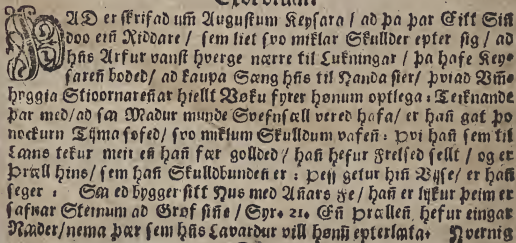 ÞAD er skrifad um̃ Augustum Keysara / ad þa þar Eitt Sin̄
doo ein̄ Riddare / sem liet svo miklar Skullder epter sig / ad
hn̄s Arfur vanst hverge nærre til Lukningar / þa hafe Key-
saren̄ boded / ad kaupa Sæng hn̄s til Handa sier / þviad Vm̄-
hyggia Stioornaren̄ar hiellt Voku fyrer honum optlega: Teiknande
þar med / ad sa Madur munde Svefnsæll vered hafa / er han̄ gat þo
nockurn Tijma sofed / svo miklum Skulldum vafen̄ : þvi han̄ sem til
Laans tekur men er han̄ fær gollded / han̄ hefur Frelsed sellt / og er
Þræll hins / sem han̄ Skulldbunden̄ er : þeij getur hin̄ Vijse / er han̄
seger : Saa ed bygger sitt Hus med An̄ars Fe / han̄ er lijkur þeim er
safnar Steinum ad Grof sin̄e / Syr. 21. En̄ Þrællen̄ hefur eingar
Nader / nema þær sem hn̄s Lavardur vill honū epterlaata. Hvernig